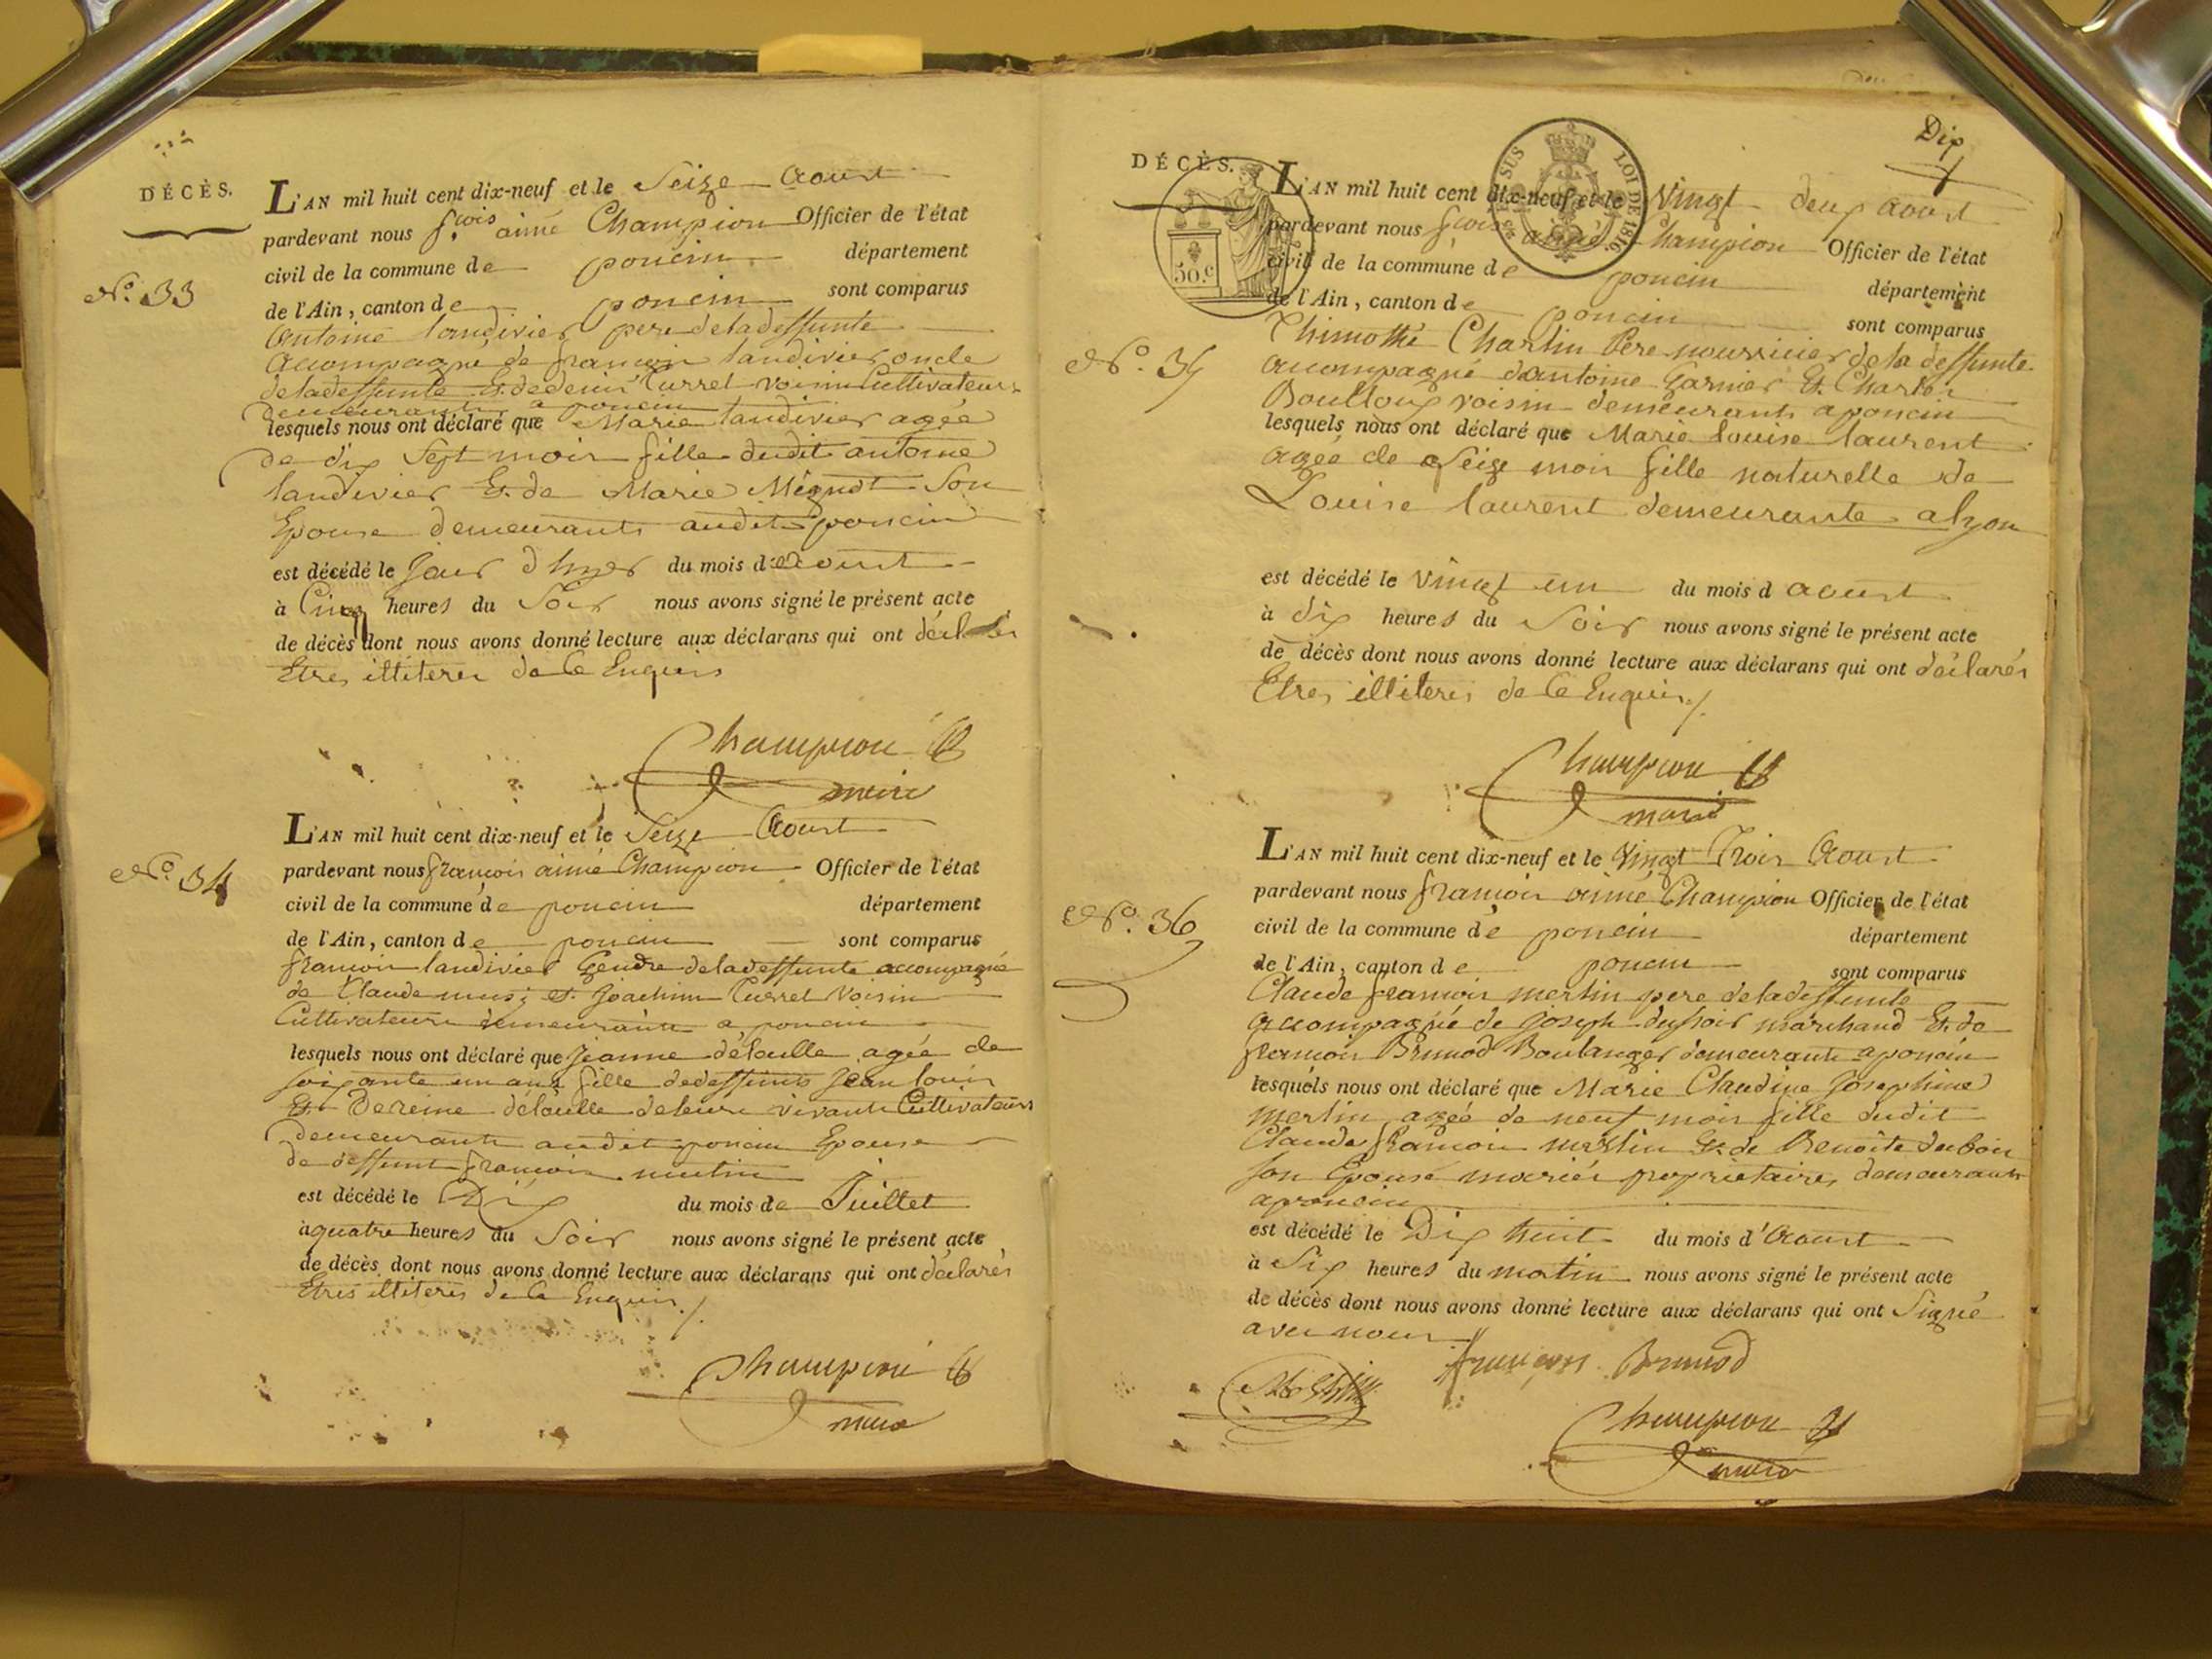 DÉCÈS.
L'AN mil huit cent dix-neuf et le Seize Aoust
pardevant nous f.cois aimé Champion Officier de l'état
civil de la commune de poncin département
N.o 33
de l'Ain, canton de poncin sont comparus
Antoine landivier pere deladeffunte
accompagné de francois landivier oncle
deladeffunte Et dedenis turrel voisin Cultivateurs
demeurants a poncin
lesquels nous ont déclaré que Marie landivier agée
de dix Sept mois fille dudit antoine
landivier Et de Marie Mégnot Son
Epouse demeurants audit poncin
est décédé le Jour d'hyer du mois d'aoust
à Cinq heures du Soir nous avons signé le présent acte
de décès dont nous avons donné lecture aux déclarans qui ont
Etres illiteres de Ce Enquis
Champion
maire
L'AN mil huit cent dix-neuf et le Seize Aoust
N.o 34
pardevant nous francois aimé Champion Officier de l'état
civil de la commune de poncin département
de l'Ain, canton de poncin sont comparus
francois landivier Gendre deladeffunte accompagné
de Claude et Joachim turrel Voisin
Cultivateurs demeurants a poncin
lesquels nous ont déclaré que Jeanne agée de
soixante un ans fille dedeffunts Jean louis
Et De reine deleurs vivants Cultivateurs
demeurants audit poncin Epouse
de deffunt francois
est décédé le Dix du mois de Juillet
à quatre heures du Soir nous avons signé le présent acte
de décès dont nous avons donné lecture aux déclarans qui ont déclarés
Etres illiteres de Ce Enquis ./.
Champion
maire
Dix
DÉCÈS.
50.c
SUS
LOI DE 1816.
L'AN mil huit cent dix-neuf et le Vingt deux aoust
pardevant nous fcois aimé Champion Officier de l'état
civil de la commune de poncin département
de l'Ain, canton de poncin sont comparus
N.o 35
Thimothé Charlin Pere nourricier dela deffunte
accompagné dantoine Garnier Et Charles
Boulloux voisin demeurants a poncin
lesquels nous ont déclaré que Marie louise laurent
agée de Seize mois fille naturelle de
Louise laurent demeurante alyon
est décédé le vingt un du mois d aoust
à dix heures du Soir nous avons signé le présent acte
de décès dont nous avons donné lecture aux déclarans qui ont déclarés
Etres illiteres de Ce Enquis ./.
Champion
maire
L'AN mil huit cent dix-neuf et le Vingt Trois Aoust
N.o 36
pardevant nous francois aimé Champion Officier de l'état
civil de la commune de poncin département
de l'Ain, canton de poncin sont comparus
Claude francois merlin pere deladeffunte
accompagné de joseph marchand Et de
francois Brunod Boulanger demeurants a poncin
lesquels nous ont déclaré que Marie Claudine Josephine
merlin agée de neuf mois fille dudit
Claude francois merlin Et de Benoite dubois
son Epouse mariés proprietaires demeurants
a poncin
est décédé le Dix huit du mois d'Aoust
à Six heures du matin nous avons signé le présent acte
de décès dont nous avons donné lecture aux déclarans qui ont Signé
avec nous
françois Brunod
Champion
maire